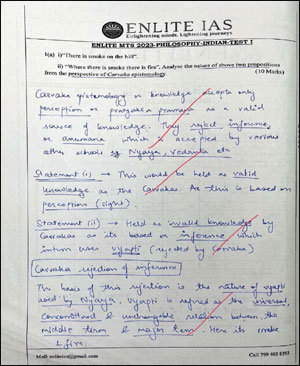 ENLITE IAS
Enlightening minds. Lightening journeys
ENLITE MTS 2023-PHILOSOPHY-INDIAN-TEST I
1(a) i)"There is smoke on the hill".
ii) "Where there is smoke there is fire". Analyse the nature of above two propositions
from the perspective of Carvaka epistemology. (10 Marks)
Carvaka epistemology or knowledge accepts only
perception or pratyaksa pramana as a valid
source of knowledge. They reject inference
or anumana which is accepted by various
other schools eg Nyaya, Vedanta etc
Statement (i) → This would be held as valid
knowledge as the Carvakas. As this is based on
perception (sight)
Statement (ii) → Held as invalid knowledge by
Carvakas as its based on inference which
inturn uses vyapti (rejected by Carvaka)
Carvaka rejection of inference
The basis of this rejection is the nature of vyapti
used by Nyaya. Vyapti is defined as the universal,
concomittant & unchangable relation between the
middle term & major term. Here its smoke
& fire.
Mail: enliteias@gmail.com
Call 799 465 8353